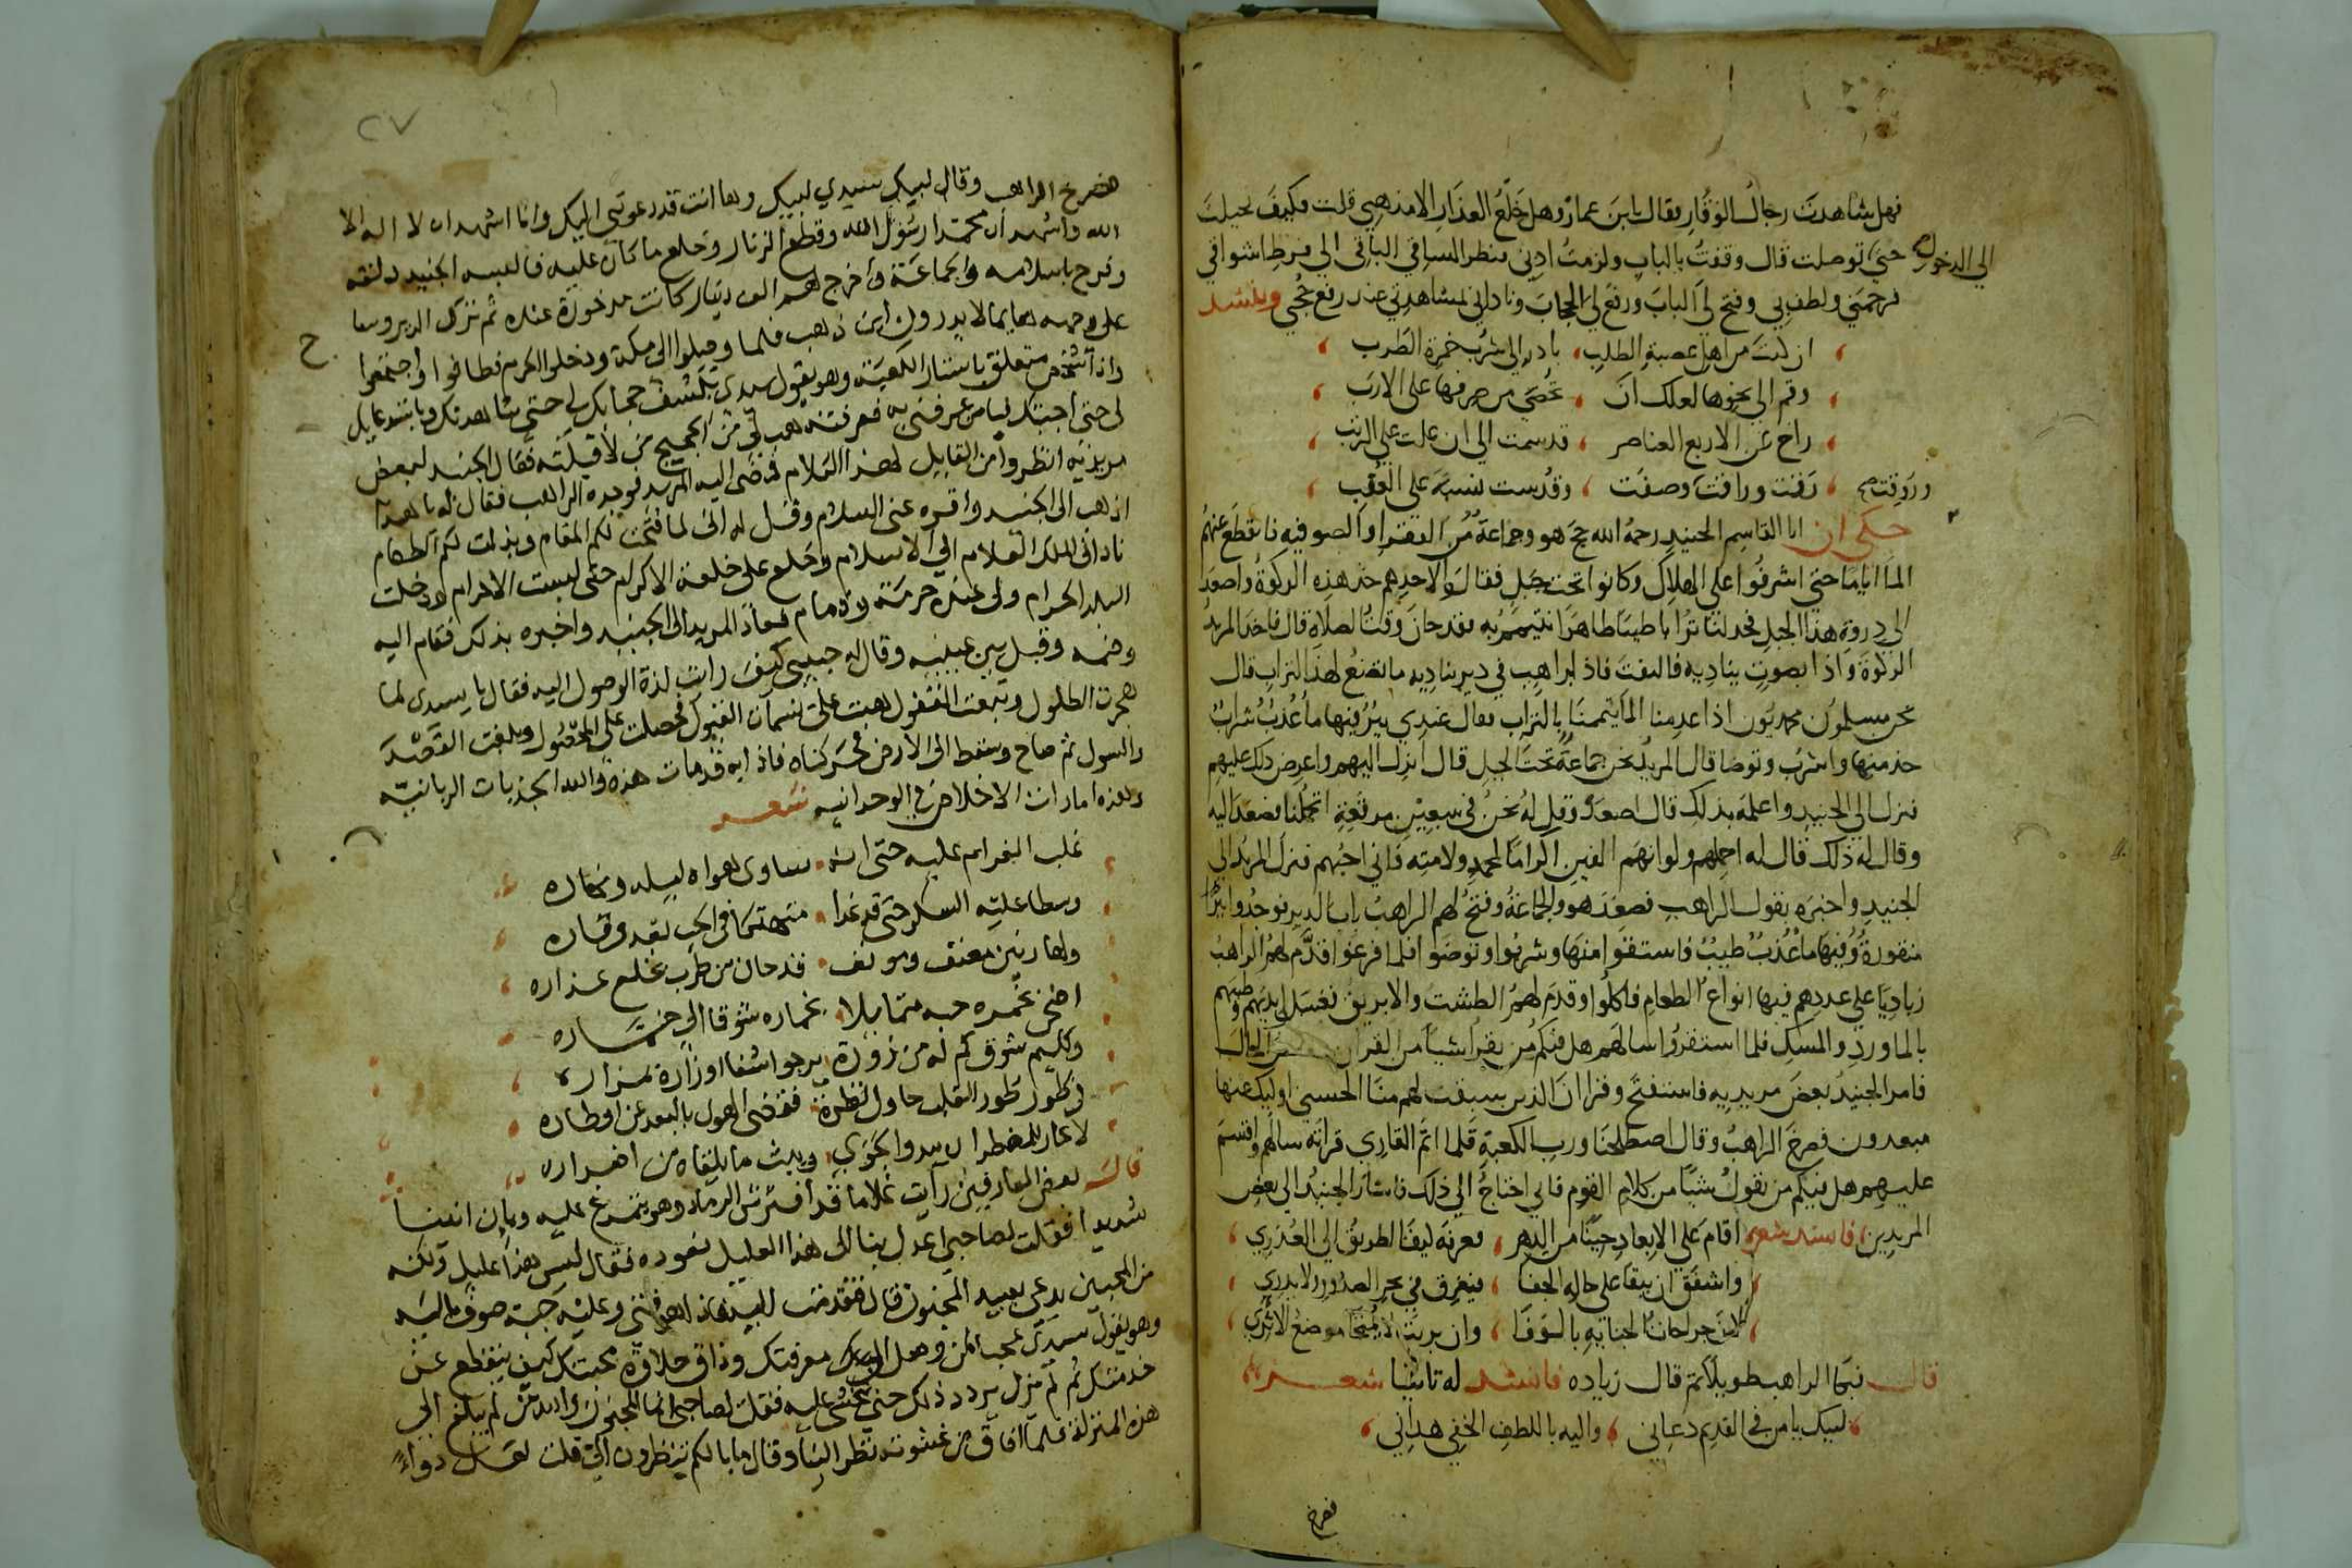 فهل شاهدت رجال الوقار فقال يابن عمار وهل خلع العذار الا مذهبي قلت فكيف تحيلت
الى الدخول حتى توصلت قال وقفت بالباب ولزمت ادبي فنظر الساقي الباقي الى فرط اشواقي
فرحمني ولطف بي وفتح لي الباب ورفع لي الحجاب وناداني لمشاهدتي عند رفع حجبي وينشد
ان كنت من اهل عصبة الطلب بادر الى شرب خمرة الطرب
وقم الى نحوها لعلك ان تحضى من صرفها على الارب
راح عن الاربع العناصر قد سمت الى ان علت على الرتب
وروقت صح رقت وراقت وصفت وقدست نسبة على العقب
حكى ان ابا القاسم الجنيد رحمه الله حج هو وجماعة من الفقرا والصوفيه فانقطع عنهم
الما اياما حتى اشرفوا على الهلاك وكانوا تحت جبل فقال لاحدهم خذ هذه الركوة واصعد
الى دروة هذا الجبل فخد لنا ترابا طيبا طاهرا نتيمم به فقد حان وقت الصلاة قال فاخد المريد
الركوة واذا بصوت يناديه فالتفت فاذ ابراهب في دير يناديه ما تصنع لهذا التراب قال
نحن مسلمون محمديون اذا عدمنا الما تيممنا بالتراب فقال عندي بير فيها ما عذب شراب
خذ منها واشرب وتوضا قال المريد نحن جماعة تحت الجبل قال انزل اليهم واعرض ذلك عليهم
فنزل الى الجنيد واعلمه بذلك قال اصعد وقل له نحن في سبعين مرقعة اتحملنا فصعد اليه
وقال له ذلك قال له احملهم ولو انهم الفين اكراما لمحمد ولامته فاني احبهم فنزل المريد الى
الجنيد واخبره بقول الراهب فصعد هو والجماعة وفتح لهم الراهب باب الدير فوجدوا بيرا
منقورة وفيها ما عذب طيب فاستقوا منها وشربوا وتوضوا فلما فرغوا قدم لهم الراهب
زباديا على عددهم فيها انواع الطعام فاكلوا وقدم لهم الطشت والابريق فغسل ايديهم وطيبهم
بالماورد والمسك فلما استقروا سالهم هل فيكم من يقرا شيا من القران
فامر الجنيد بعض مريديه فاستفتح وقرا ان الذين سبقت لهم منا الحسنى اوليك عنها
مبعدون فصرخ الراهب وقال اصطلحنا ورب الكعبة فلما اتم القاري قراته سالهم واقسم
عليهم هل فيكم من يقول شيا من كلام القوم فاني احتاج الى ذلك فاشار الجنيد الى بعض
المريدين فانشد شعر اقام على الابعاد حينا من الدهر فعرفه كيف الطريق الى العذري
واشفق ان يبقا على حاله الجفا فيغرق في بحر الصدور ولا يدري
لان جراحات الجنايه بالوفا وان بريت لا يمتحا موضع الاثري
قال فبكا الراهب طويلا ثم قال زياده فانشد له ثانيا شعر
لبيك يا من في القديم دعاني واليه باللطف الخفي هداني
فصرخ
٢٧
فصرخ الراهب وقال لبيك سيدي لبيك وها انت قد دعوتني اليك وانا اشهد ان لا اله الا
الله واشهد ان محمدا رسول الله وقطع الزنار وخلع ما كان عليه فالبسه الجنيد دلقه
وفرح باسلامه والجماعة واخرج لهم الف دينار كانت مدخورة عنده ثم نزل الدير وسعا
على وجهه هايما لا يدرون اين ذهب فلما وصلوا الى مكة ودخلوا الحرم فطافوا واجتمعوا
واذا شخص متعلق باستار الكعبة وهو يقول سيدي تكشف حجابك لي حتى شاهدتك
لي حتى اجبتك يا من عرفني به فعرفته هب لي من الحجيج من لا قبلته فقال الجنيد لبعض
مريديه انظروا من القايل لهذا الكلام فمضى اليه المريد فوجده الراهب فقال له يا هذا
اذهب الى الجنيد واقره عني السلام وقل له اني لما فتحت لكم المقام وبذلت لكم الطعام
ناداني الملك العلام الى الاسلام وخلع على خلعة الاكرام حتى لبست الاحرام ودخلت
البلد الحرام ولى عنده حرمة وذمام فعاد المريد الى الجنيد واخبره بذلك فقام اليه
وضمه وقبل بين عينيه وقال له حبيبي كيف رايت لذة الوصول اليه فقال يا سيدي لما
هجرت الطلول وتبعت القفول هبت على نسمات القبول فحصلت على المحصول وبلغت القصد
والسول ثم صاح وسقط الى الارض فحركناه فاذا به قد مات هذه والله الجذبات الربانيه
وهذه امارات الاخلاص في الوحدانيه شعر
غلب الغرام عليه حتى انه ساوى هواه ليله ونهاره
وسطا عليه السكر حتى قد غدا متهتكا في الحب بعد وقاره
ولها ربين معنف ومولف قد حان من طرب بخلع عذاره
اضحى بخمره حبه متمايلا بخماره شوقا الى خماره
وكليم شوق كم له من زورة يرجو اشفا او زارة بمزاره
في طور طور القلب حاول نظرة فقضى الهول بالبعد عن اوطاره
لا عار للمضطر ان يبدو الجوى ويبث ما يلقاه من اضراره
قال بعض العارفين رايت غلاما قد افترش الرماد وهو يتمرغ عليه ويان انينا
شديدا فقلت لصاحبي اعدل بنا الى هذا العليل نعوده فقال ليس هذا عليل ولكنه
من المحبين يدعى بعبيد المجنون قال فتقدمت اليه فاذا هو فتى وعليه جبة صوف باليه
وهو يقول سيدي عجبا لمن وصل اليك معرفتك وذاق حلاوة محبتك كيف ينقطع عن
خدمتك ثم لم يزل يردد ذلك حتى غشى عليه فقلت لصاحبي انما المجنون والله من لم يبلغ الى
هذه المنزلة فلما افاق من غشوته نظر الينا وقال ما بالكم تنظرون الي قلت لعل دواء